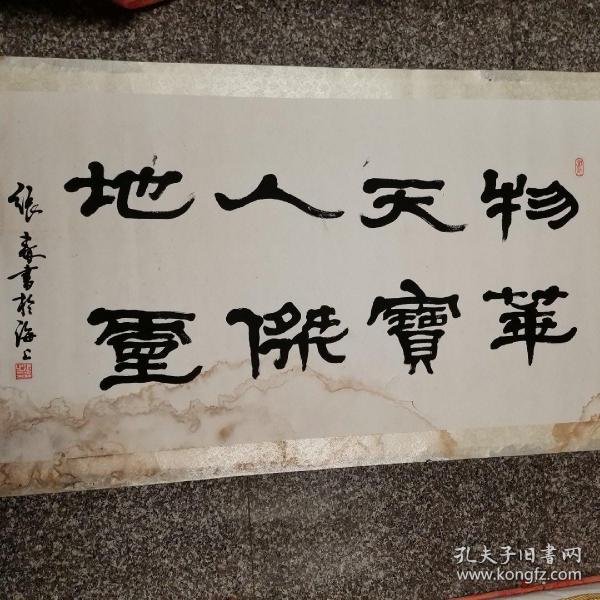 物華
天寶
人傑
地靈
張森書於海上
孔夫子旧書网
www.kongfz.com